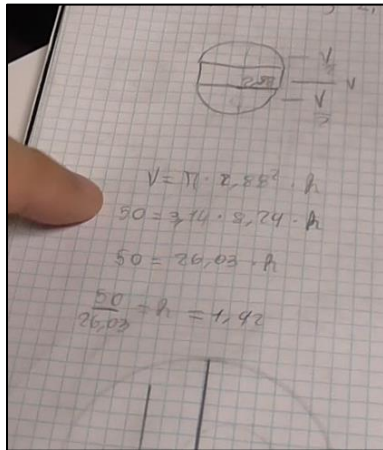 V/2
2,88 V
V/2
V = π · 2,88² · h
50 = 3,14 · 8,29 · h
50 = 26,03 · h
50/26,03 = h = 1,92